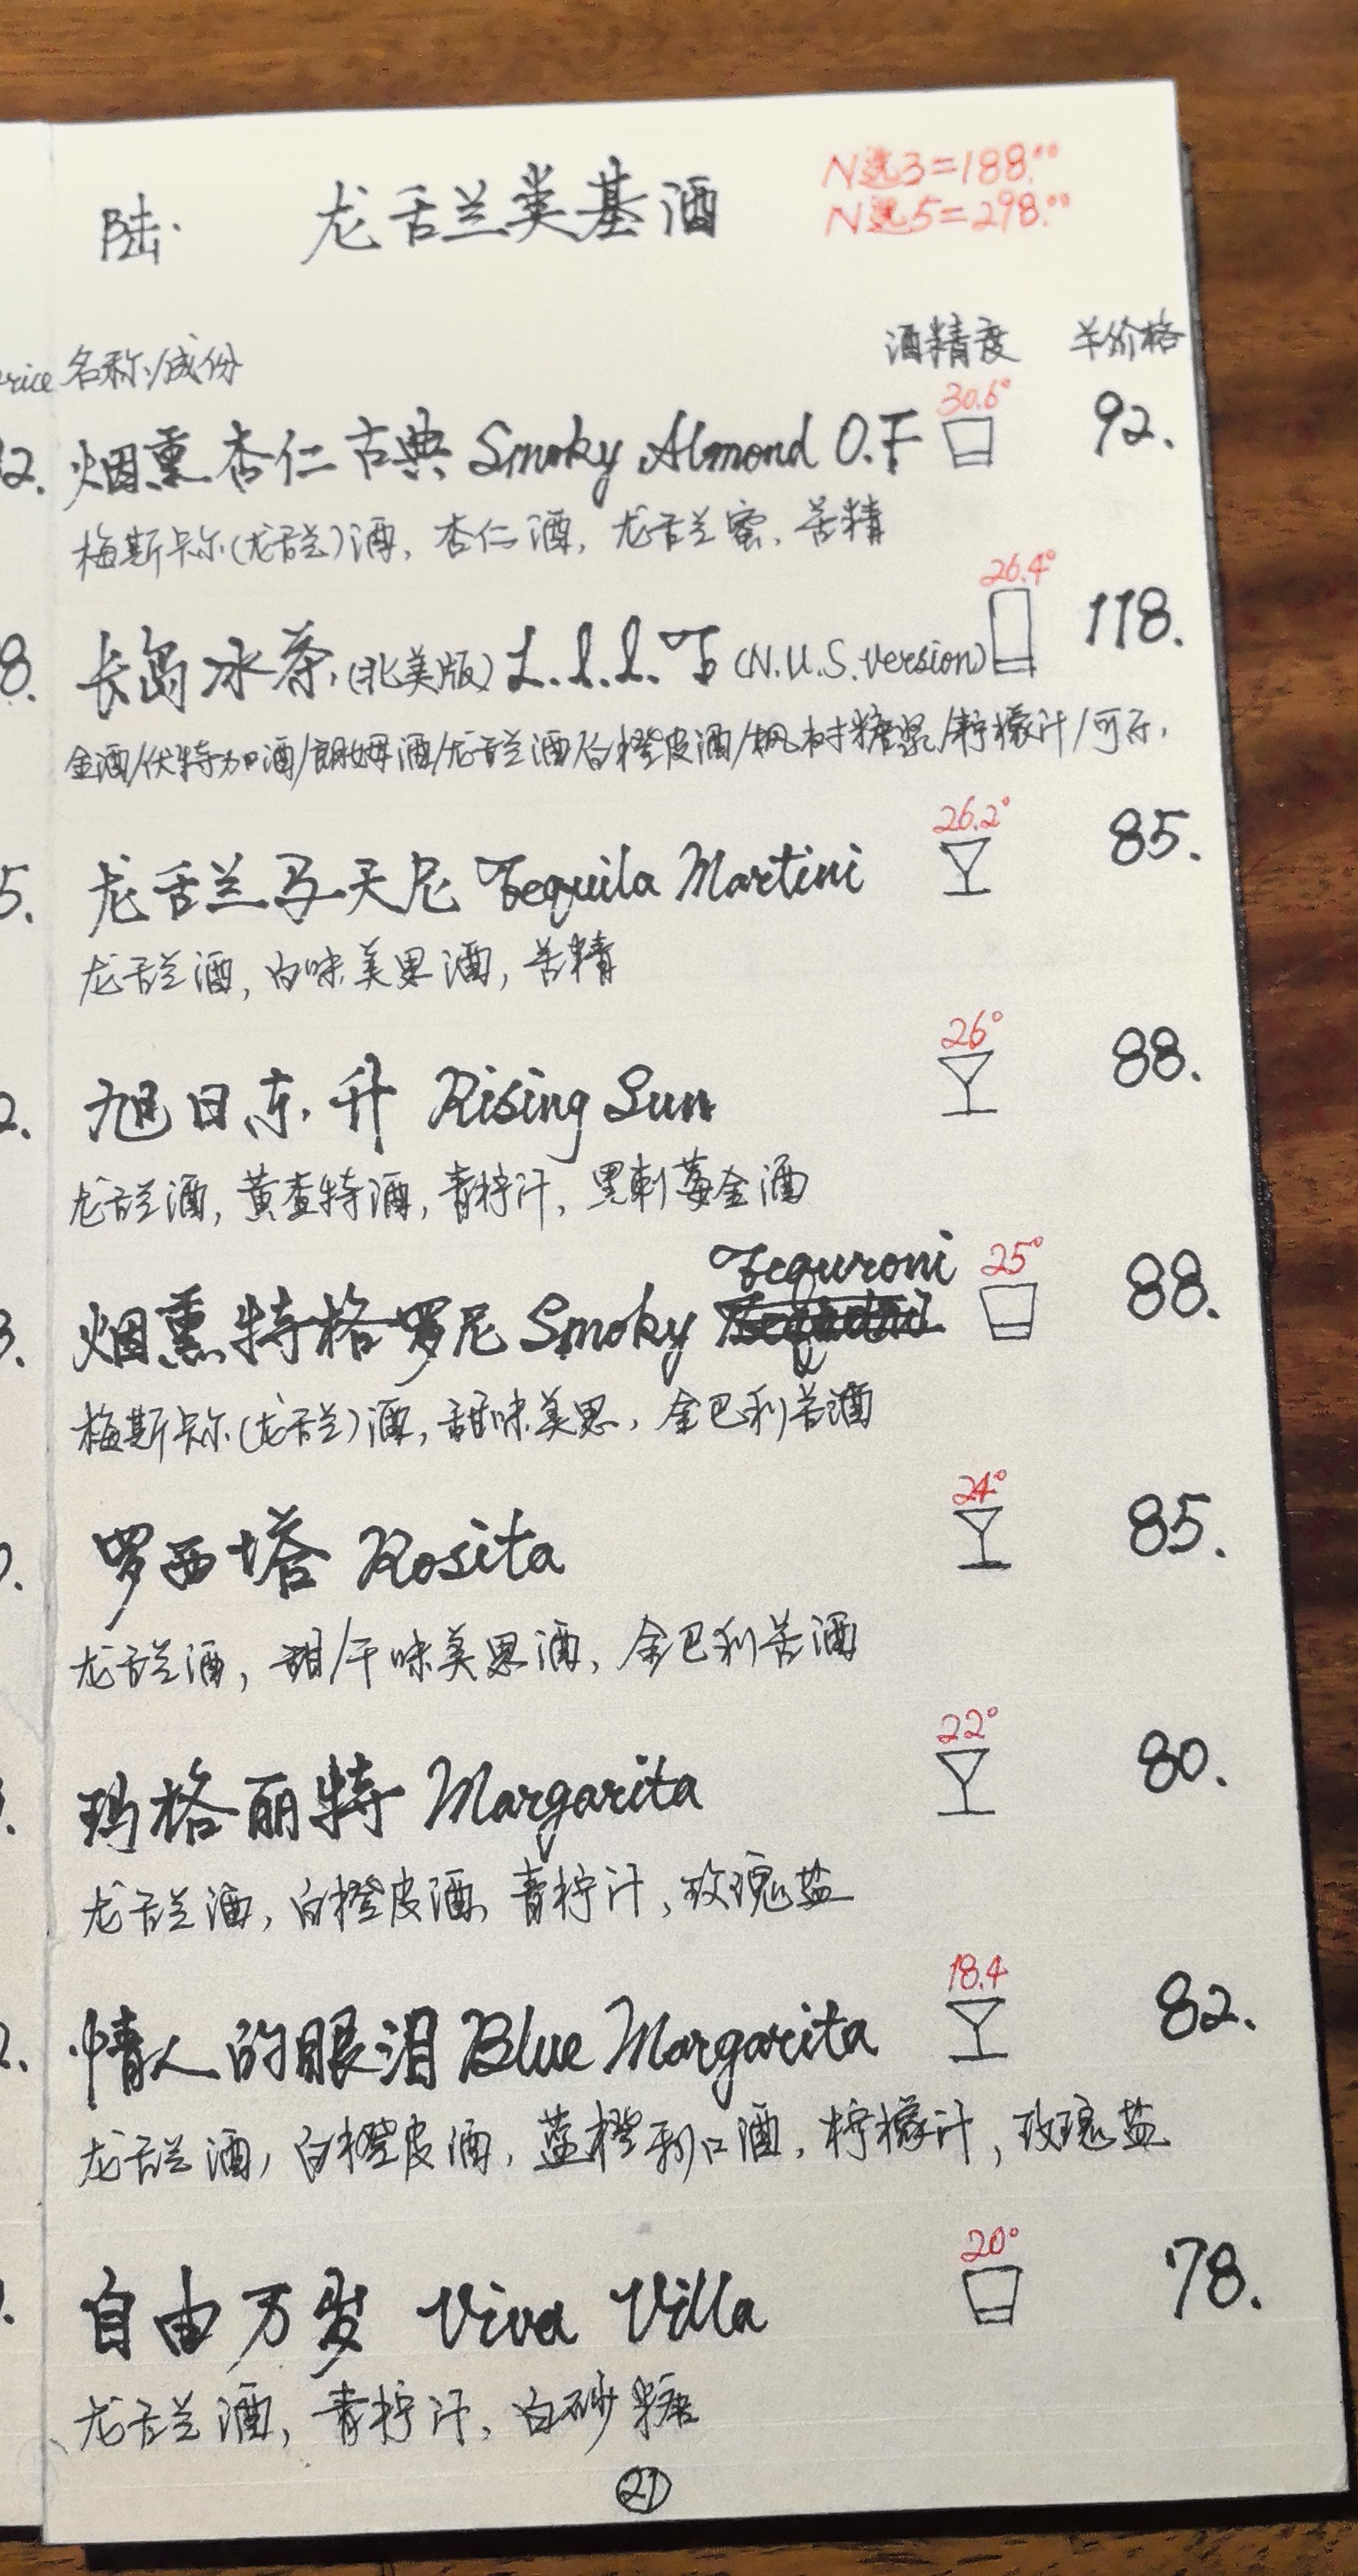 陆. 龙舌兰类基酒
N选3=188.00
N选5=298.00
rice 名称/成份 酒精度 羊价格
30.6°
2. 烟熏杏仁古典 Smoky Almond O.F 92.
梅斯卡尔(龙舌兰)酒, 杏仁酒, 龙舌兰蜜, 苦精
26.4°
8. 长岛冰茶(北美版) L.I.I.T (N.U.S. version) 118.
金酒/伏特加酒/朗姆酒/龙舌兰酒/白橙皮酒/枫树糖浆/柠檬汁/可乐.
26.2°
5. 龙舌兰马天尼 Tequila Martini 85.
龙舌兰酒, 白味美思酒, 苦精
26°
2. 旭日东升 Rising Sun 88.
龙舌兰酒, 黄查特酒, 青柠汁, 黑刺莓金酒
Tequroni 25°
3. 烟熏特格罗尼 Smoky 88.
梅斯卡尔(龙舌兰)酒, 甜味美思, 金巴利苦酒
24°
罗西塔 Rosita 85.
龙舌兰酒, 甜/干味美思酒, 金巴利苦酒
22°
玛格丽特 Margarita 80.
龙舌兰酒, 白橙皮酒, 青柠汁, 玫瑰盐
18.4
2. 情人的眼泪 Blue Margarita 82.
龙舌兰酒, 白橙皮酒, 蓝橙利口酒, 柠檬汁, 玫瑰盐
20°
自由万岁 Viva Villa 78.
龙舌兰酒, 青柠汁, 白砂糖
21